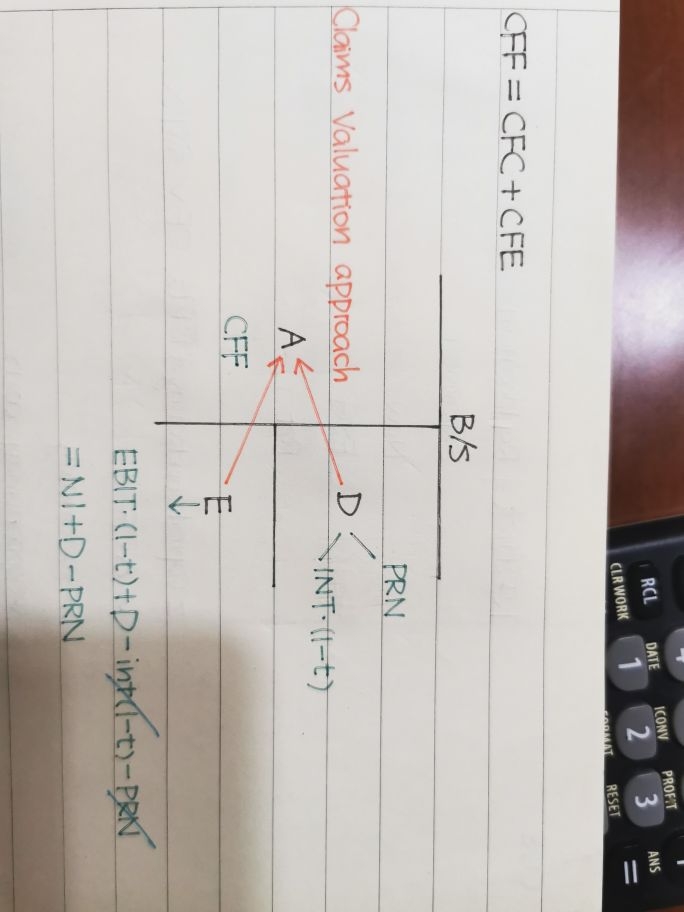 CFF = CFC + CFE
B/S
Claims Valuation approach
PRN
D
INT·(1-t)
A
CFF
E
↓
EBIT·(1-t)+D-int(1-t)-PRN
=NI+D-PRN
RCL
CLR WORK
DATE
1
ICONV
2
PROFIT
3
RESET
ANS
=
4
FORMAT